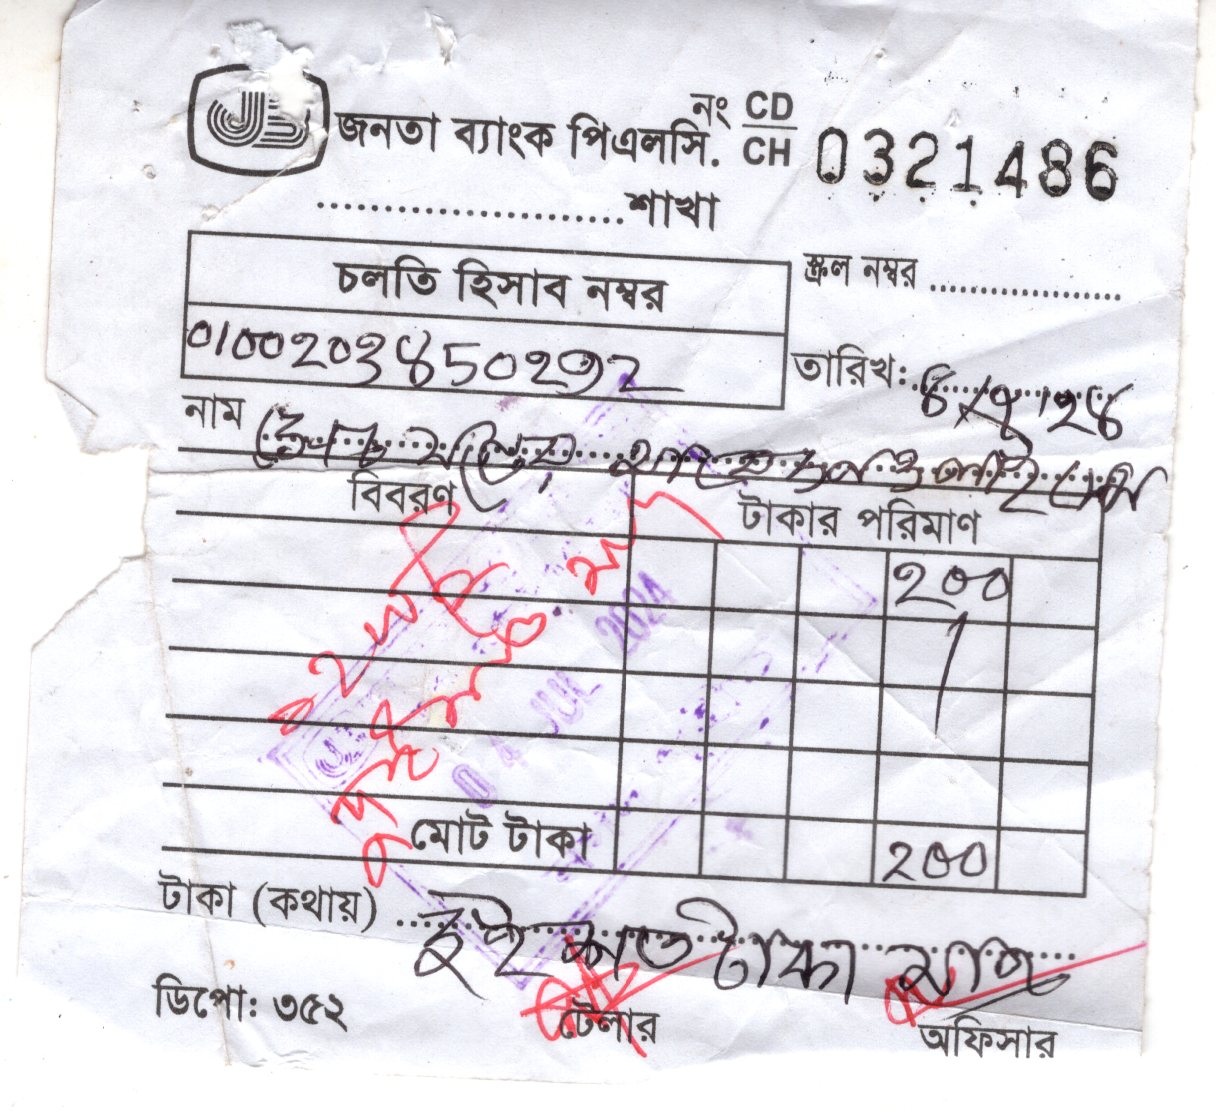 জনতা ব্যাংক পিএলসি.
নং CD/CH 0321486
....................শাখা
চলতি হিসাব নম্বর
0100203850292
স্ক্রল নম্বর ....................
তারিখ: ৪/৭/২৪
নাম
বিবরণ
টাকার পরিমাণ
২০০
04 JUL 2024
মোট টাকা
২০০
টাকা (কথায়) দুই শত টাকা মাত্র
ডিপো: ৩৫২
টেলার
অফিসার